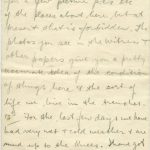 you a few picture p.c. etc
of the places about here, but at
present that is forbidden. The
photos you see in the Witness &
other papers give you a pretty
accurate idea of the condition
of things here & the sort of
life we live in the trenches.
For the last few days we have
had very wet & cold weather & are
mud up to the knees. I have got